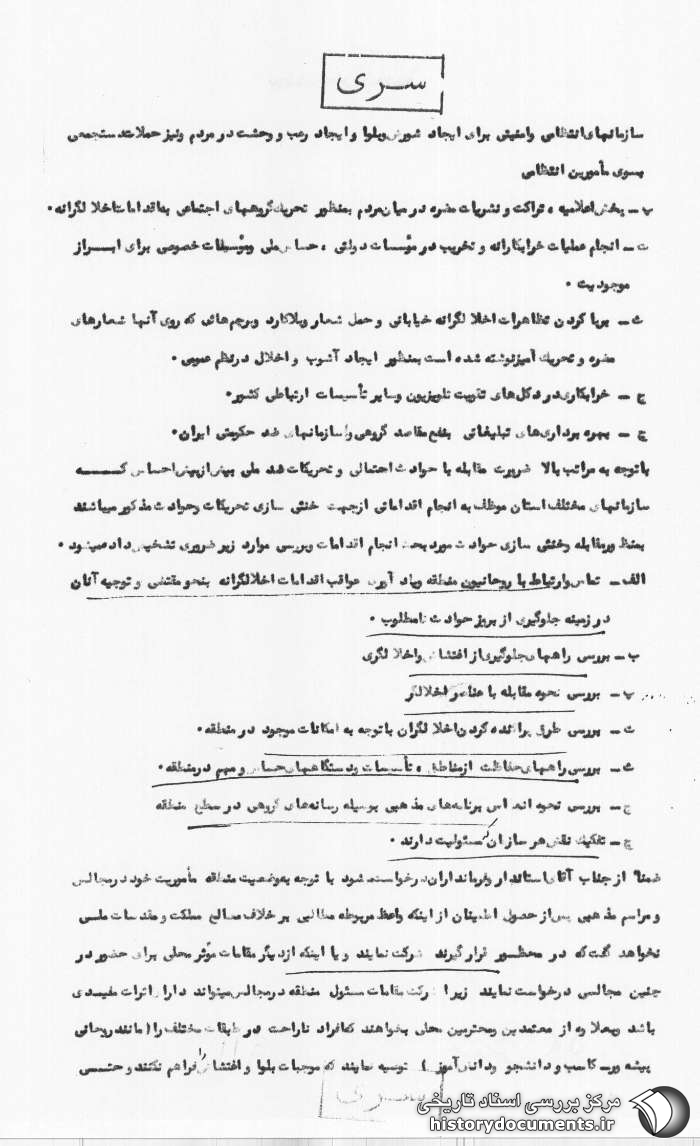 سری
سازمانهای انتظامی وامنیتی برای ایجاد شورش وبلوا وایجاد رعب و وحشت در مردم ونیز حملات دستجمعی
بسوی مأمورین انتظامی
پ ـ پخش اعلامیه ، تراکت و نشریات مضره در میان مردم بمنظور تحریک گروههای اجتماعی به اقدامات اخلا لگرانه .
ت ـ انجام عملیات خرابکارانه و تخریب در مؤسسات دولتی ، حساس ملی وموسسات خصوصی برای ابـــراز
موجودیت .
ث ـ برپا کردن تظاهرات اخلا لگرانه خیابانی و حمل شعار وپلاکارد وپرچم هائی که روی آنها شعارهای
مضره و تحریک آمیز نوشته شده است بمنظور ایجاد آشوب و اخلال در نظم عمومی .
ج ـ خرابکاری در دکل های تقویت تلویزیون وسایر تأسیسات ارتباطی کشور .
چ ـ بهره برداری های تبلیغاتی بنفع مقاصد گروهی وسازمانهای ضد حکومتی ایران .
باتوجه به مراتب بالا ضرورت مقابله با حوادث احتمالی و تحریکات ضد ملی بیش از پیش احساس کـــــه
سازمانهای مختلف استان موظف به انجام اقداماتی ازجهت خنثی سازی تحریکات وحوادث مذکور میباشند
بمنظور مقابله وخنثی سازی حوادث مورد بحث انجام اقدامات وبررسی موارد زیر ضروری تشخیص داده میشود .
الف ـ تماس وارتباط با روحانیون منطقه ویاد آوری عواقب اقدامات اخلالگرانه بنحو مقتضی و توجیه آنان
در زمینه جلوگیری از بروز حوادث نامطلوب .
ب ـ بررسی راههای جلوگیری از اغتشاش واخلا لگری
پ ـ بررسی نحوه مقابله با عناصر اخلالگر
ت ـ بررسی طرق پراکنده کردن اخلا لگران باتوجه به امکانات موجود در منطقه .
ث ـ بررسی راههای حفاظت از مناطق ، تأسیسات ودستگاههای حساس و مهم در منطقه .
ج ـ بررسی نحوه انعکاس برنامه های مذهبی بوسیله رسانه های گروهی در سطح منطقه
چ ـ تفکیک نقش هر سازمان مسئولیت دارند .
ضمنا" از جناب آقای استاندار وفرمانداران درخواست میشود با توجه به وضعیت منطقه مأموریت خود در مجالس
و مراسم مذهبی پس از حصول اطمینان از اینکه واعظ مربوطه مطالبی بر خلاف مصالح مملکت و مقدسات ملـی
نخواهد گفت که در محظـــور قرار گیرند شرکت نمایند و یا اینکه از دیگر مقامات مؤثر محلی برای حضور در
چنین مجالسی درخواست نمایند زیرا شرکت مقامات مسئول منطقه در مجالس میتواند دارای اثرات مفیـدی
باشد وبعلاوه از معتمدین ومحترمین محلی بخواهند که افراد ناراحت در طبقات مختلف را ( مانند روحانی
پیشه ور ـ کاسب و دانشجو ودانش آموز ) توصیه نمایند که موجبات بلوا و اغتشاش را فراهم نکنند و حتـــی
سری
مرکز بررسی اسناد تاریخی
historydocuments.ir